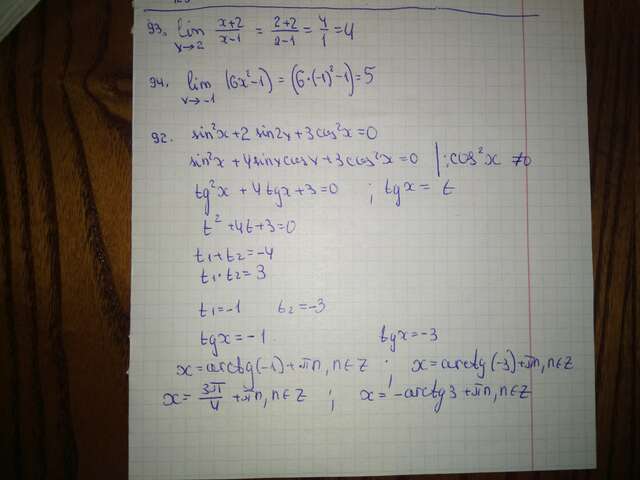 93. lim x→2 (x+2)/(x-1) = (2+2)/(2-1) = 4/1 = 4
94. lim x→-1 (6x²-1) = (6·(-1)²-1) = 5
92. sin²x + 2 sin2x + 3cos²x = 0
sin²x + 4sinx cosx + 3cos²x = 0 | : cos²x ≠0
tg²x + 4tgx + 3 = 0 ; tgx = t
t² + 4t + 3 = 0
t₁ + t₂ = -4
t₁ · t₂ = 3
t₁ = -1 t₂ = -3
tgx = -1 tgx = -3
x = arctg(-1) + πn, n∈Z ; x = arctg(-3) + πn, n∈Z
x = 3π/4 + πn, n∈Z ; x = -arctg3 + πn, n∈Z